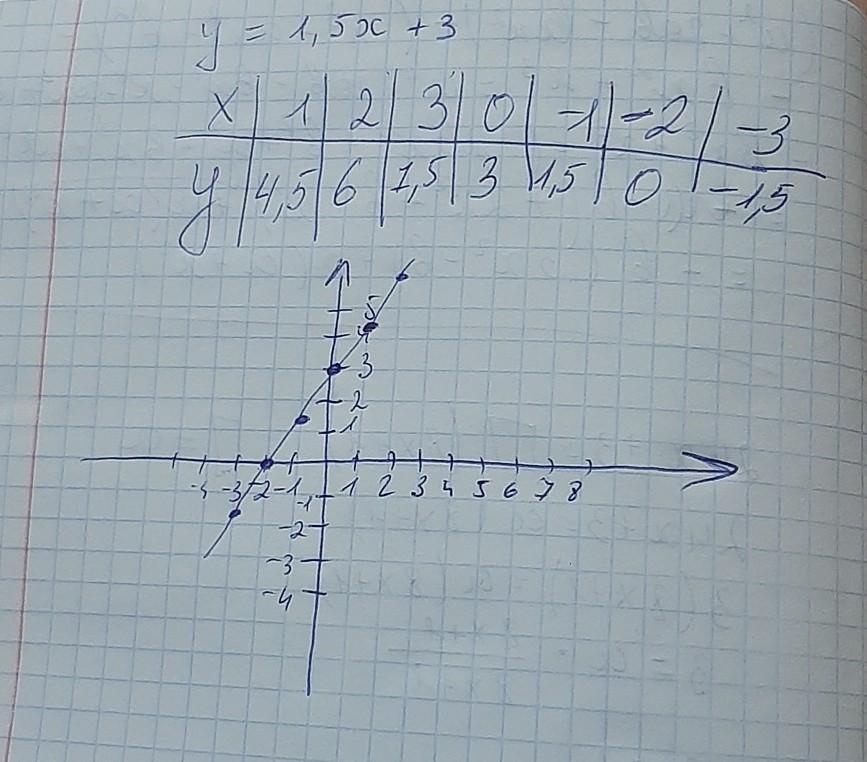 y = 1,5x + 3
x | 1 | 2 | 3 | 0 | -1 | -2 | -3
y | 4,5 | 6 | 7,5 | 3 | 1,5 | 0 | -1,5
5
4
3
2
1
-4 -3 -2 -1 1 2 3 4 5 6 7 8
-1
-2
-3
-4